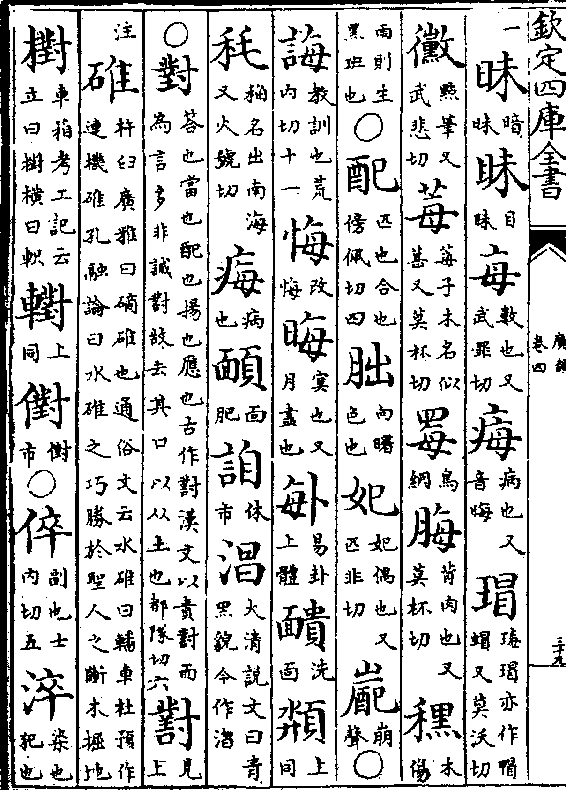 欽定四庫全書
廣韻
卷四
三十九
一昧暗昧眛目眛毎數也又武罪切痗病也又音晦瑁瑇瑁亦作蝐又莫沃切
黴㸃筆又武悲切莓莓子木名似葚又莫杯切䍙鳥網脢背肉也又莫杯切䆀禾傷
雨則生黑斑也○配匹也合也傍佩切四朏向曙色也妃妃偶也又匹非切嶏崩聲○
誨教訓也荒内切十一悔改悔晦冥也又月盡也𠧩易卦上體靧洗面頮上同
秏稻名出南海又火號切痗病也䩈面肥詯休市淐大清説文曰青黑貌今作溜
○對答也當也配也揚也應也古作對漢文以責對而為言多非誠對故去其口以从土也都隊切六對見上
注碓杵臼廣雅曰䃀碓也通俗文云水碓曰轓車杜預作連機碓孔融論曰水碓之巧勝於聖人之斷木掘地
樹車箱考工記云立曰樹横曰軹轛上同㒑㒑市○倅副也士内切五淬染也犯也